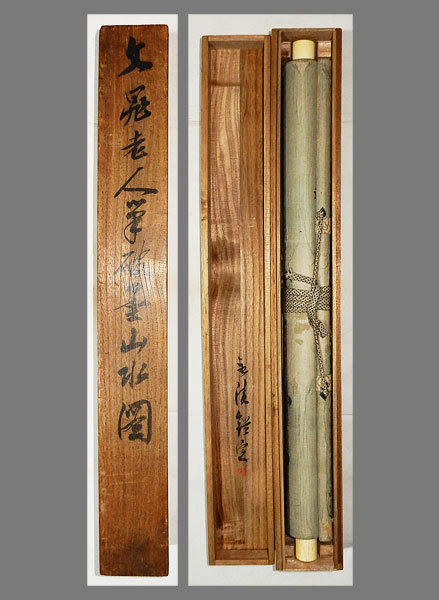 文晁老人筆破墨山水圖
鑑定